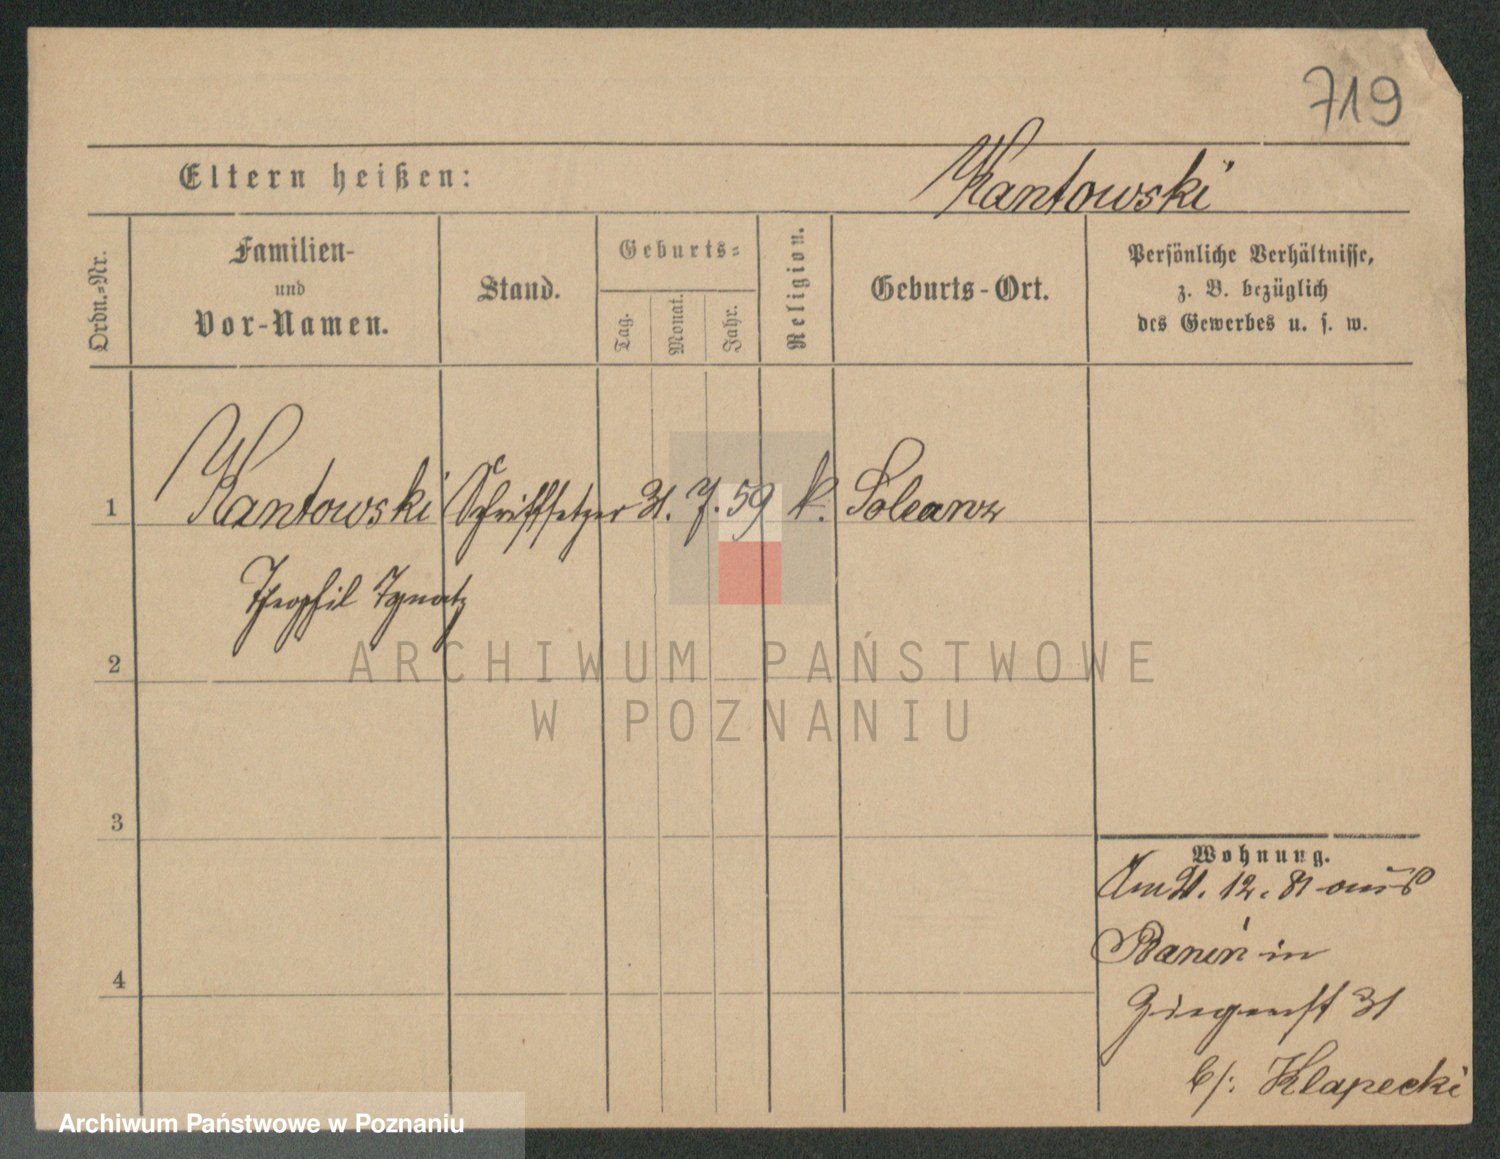 719
Eltern heißen:
Kantowski
Ordn.-Nr.
Familien-
und
Vor-Namen.
Stand.
Geburts-
Tag.
Monat.
Jahr.
Religion.
Geburts-Ort.
Persönliche Verhältnisse,
z. B. bezüglich
des Gewerbes u. s. w.
1 Kantowski Schriftsetzer 31. 7. 59 k.
Theophil Ignatz
2
ARCHIWUM PAŃSTWOWE
W POZNANIU
3
4
Wohnung.
Am 21. 12. 81 aus
in
Ziegenst 31
b/: Klapecki
Archiwum Państwowe w Poznaniu